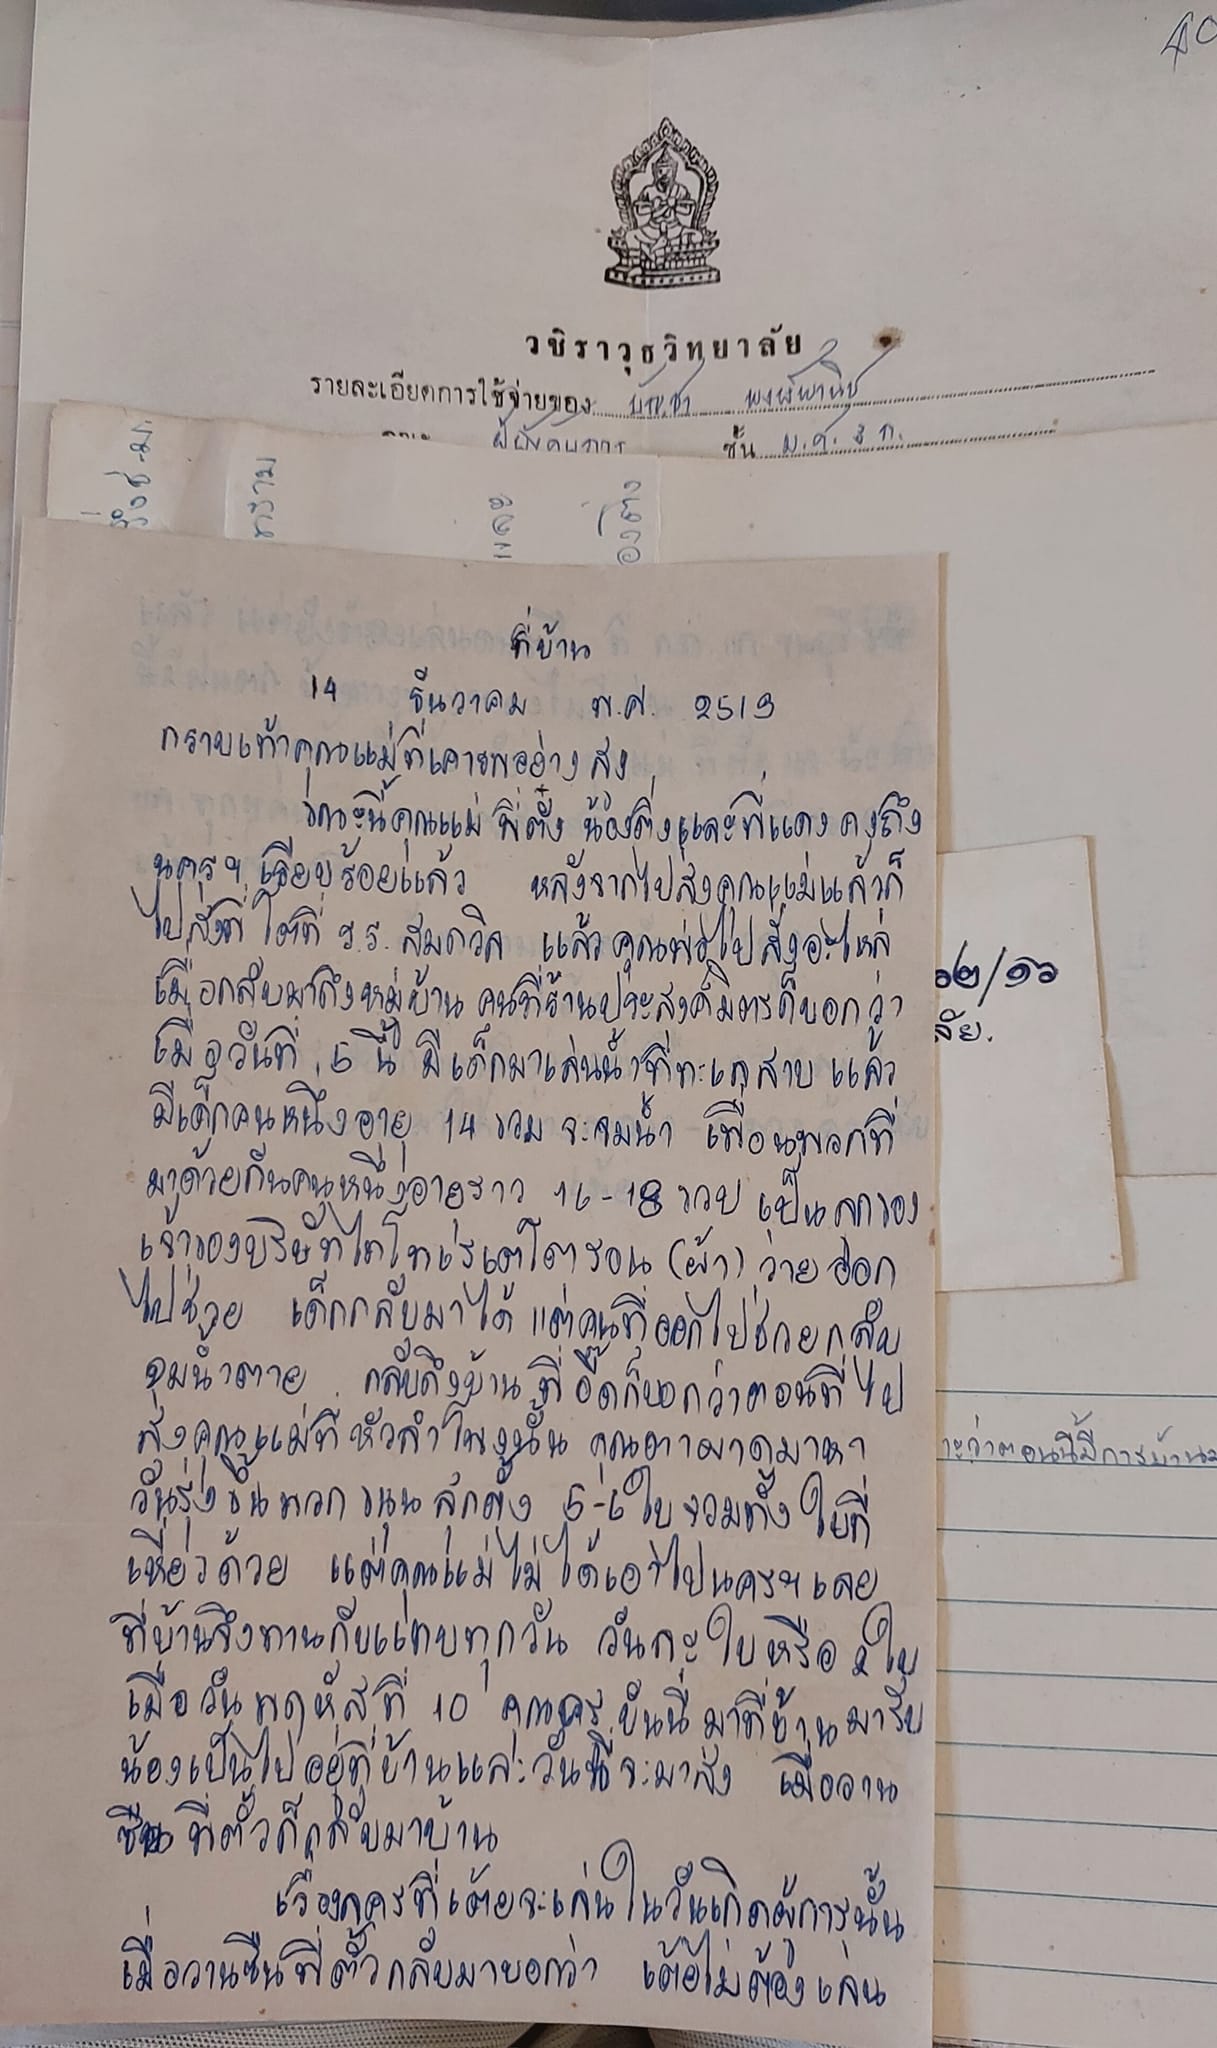 วชิราวุธวิทยาลัย
รายละเอียดการใช้จ่ายของ บัญชา พงษ์พานิช
ผู้บังคับการ ชั้น ม.ศ. 3 ก.
ที่บ้าน
14 ธันวาคม พ.ศ. 2513
กราบเท้าคุณแม่ที่เคารพอย่างสูง
ขณะนี้คุณแม่ พี่ตั๋ง น้องติ่งและพี่แดง คงถึง
นครฯ เรียบร้อยแล้ว หลังจากไปส่งคุณแม่แล้วก็
ไปส่งพี่โตที่ ร.ร. สมถวิล แล้วคุณพ่อไปสั่งอะไหล่
เมื่อกลับมาถึงหมู่บ้าน คนที่ร้านประสงค์มิตรก็บอกว่า
เมื่อวันที่ 5 นี้ มีเด็กมาเล่นน้ำที่ทะเลสาบ แล้ว
มีเด็กคนหนึ่งอายุ 14 ขวบ จะจมน้ำ เพื่อนพวกที่
มาด้วยกันคนหนึ่งอายุราว 16-18 ขวบ เป็นลูกของ
เจ้าของบริษัทไทโทเรเตโตรอน (ผ้า) ว่ายออก
ไปช่วย เด็กกลับมาได้ แต่คนที่ออกไปช่วยกลับ
จมน้ำตาย กลับถึงบ้าน พี่อี๊ดก็บอกว่าตอนที่ไป
ส่งคุณแม่ที่หัวลำโพงนั้น คุณตามาดมาหา
วันรุ่งขึ้นพวกขนุนสุกตั้ง 5-6 ใบ รวมทั้งใบที่
เหี่ยวด้วย แต่คุณแม่ไม่ได้เอาไปนครฯเลย
ที่บ้านจึงทานกันแทบทุกวัน วันละใบหรือ 2 ใบ
เมื่อวันพฤหัสที่ 10 คุณครูบันนี่มาที่บ้านมารับ
น้องเป็นไปอยู่ที่บ้านและวันนี้จะมาส่ง เมื่อวาน
ซืน พี่ตั้วก็กลับมาบ้าน
เรื่องละครที่เต้ยจะเล่นในวันเกิดผู้การนั้น
เมื่อวานซืนพี่ตั้วกลับมาบอกว่า เต้ยไม่ต้องเล่น
๖๒/๑๖
ลัย.
ะว่าตอนนี้มีการบ้านม